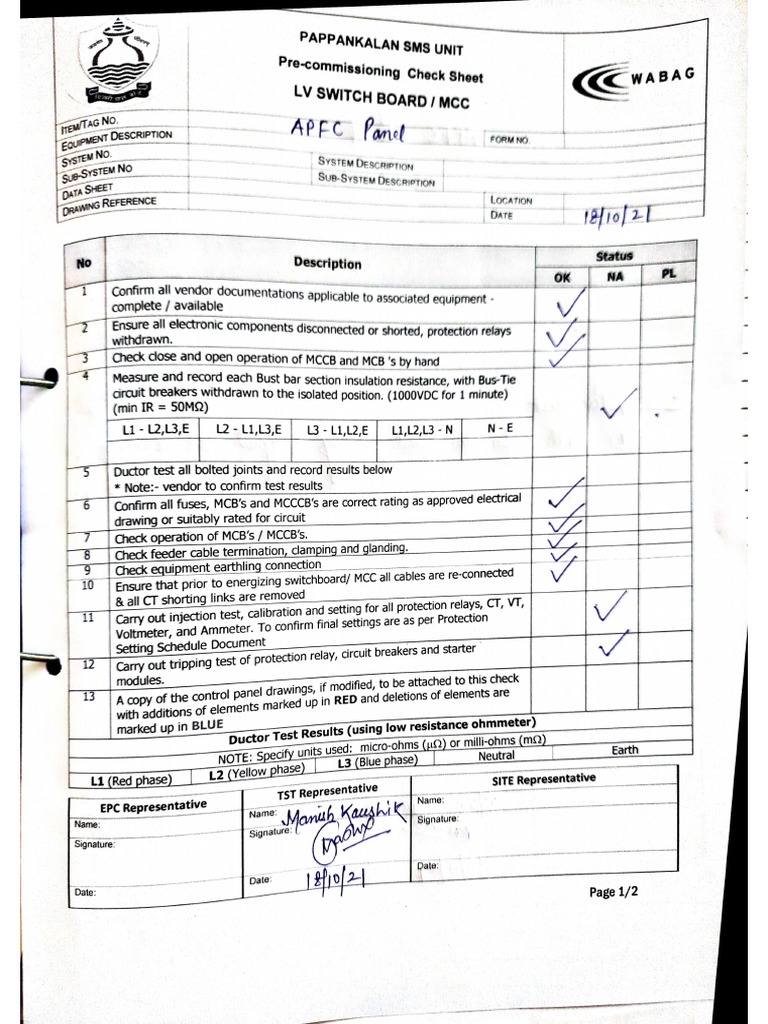 PAPPANKALAN SMS UNIT
Pre-commissioning Check Sheet
LV SWITCH BOARD / MCC
WABAG
ITEM/TAG NO.
EQUIPMENT DESCRIPTION
APFC Panel
FORM NO.
SYSTEM NO.
SYSTEM DESCRIPTION
SUB-SYSTEM NO
SUB-SYSTEM DESCRIPTION
DATA SHEET
DRAWING REFERENCE
LOCATION
DATE
18/10/21
No
Description
Status
OK
NA
PL
1
Confirm all vendor documentations applicable to associated equipment -
complete / available
✓
2
Ensure all electronic components disconnected or shorted, protection relays
withdrawn.
✓
3
Check close and open operation of MCCB and MCB 's by hand
✓
4
Measure and record each Bust bar section insulation resistance, with Bus-Tie
circuit breakers withdrawn to the isolated position. (1000VDC for 1 minute)
(min IR = 50MΩ)
✓
L1 - L2,L3,E
L2 - L1,L3,E
L3 - L1,L2,E
L1,L2,L3 - N
N - E
5
Ductor test all bolted joints and record results below
* Note:- vendor to confirm test results
6
Confirm all fuses, MCB's and MCCCB's are correct rating as approved electrical
drawing or suitably rated for circuit
✓
7
Check operation of MCB's / MCCB's.
✓
8
Check feeder cable termination, clamping and glanding.
✓
9
Check equipment earthling connection
✓
10
Ensure that prior to energizing switchboard/ MCC all cables are re-connected
& all CT shorting links are removed
✓
11
Carry out injection test, calibration and setting for all protection relays, CT, VT,
Voltmeter, and Ammeter. To confirm final settings are as per Protection
Setting Schedule Document
✓
12
Carry out tripping test of protection relay, circuit breakers and starter
modules.
✓
13
A copy of the control panel drawings, if modified, to be attached to this check
with additions of elements marked up in RED and deletions of elements are
marked up in BLUE
Ductor Test Results (using low resistance ohmmeter)
NOTE: Specify units used: micro-ohms (µΩ) or milli-ohms (mΩ)
L1 (Red phase)
L2 (Yellow phase)
L3 (Blue phase)
Neutral
Earth
EPC Representative
TST Representative
SITE Representative
Name:
Name: Manish Kaushik
Name:
Signature:
Signature:
Signature:
Date:
Date: 18/10/21
Date:
Page 1/2